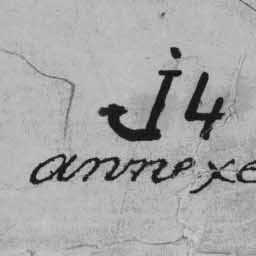 J4
annexe